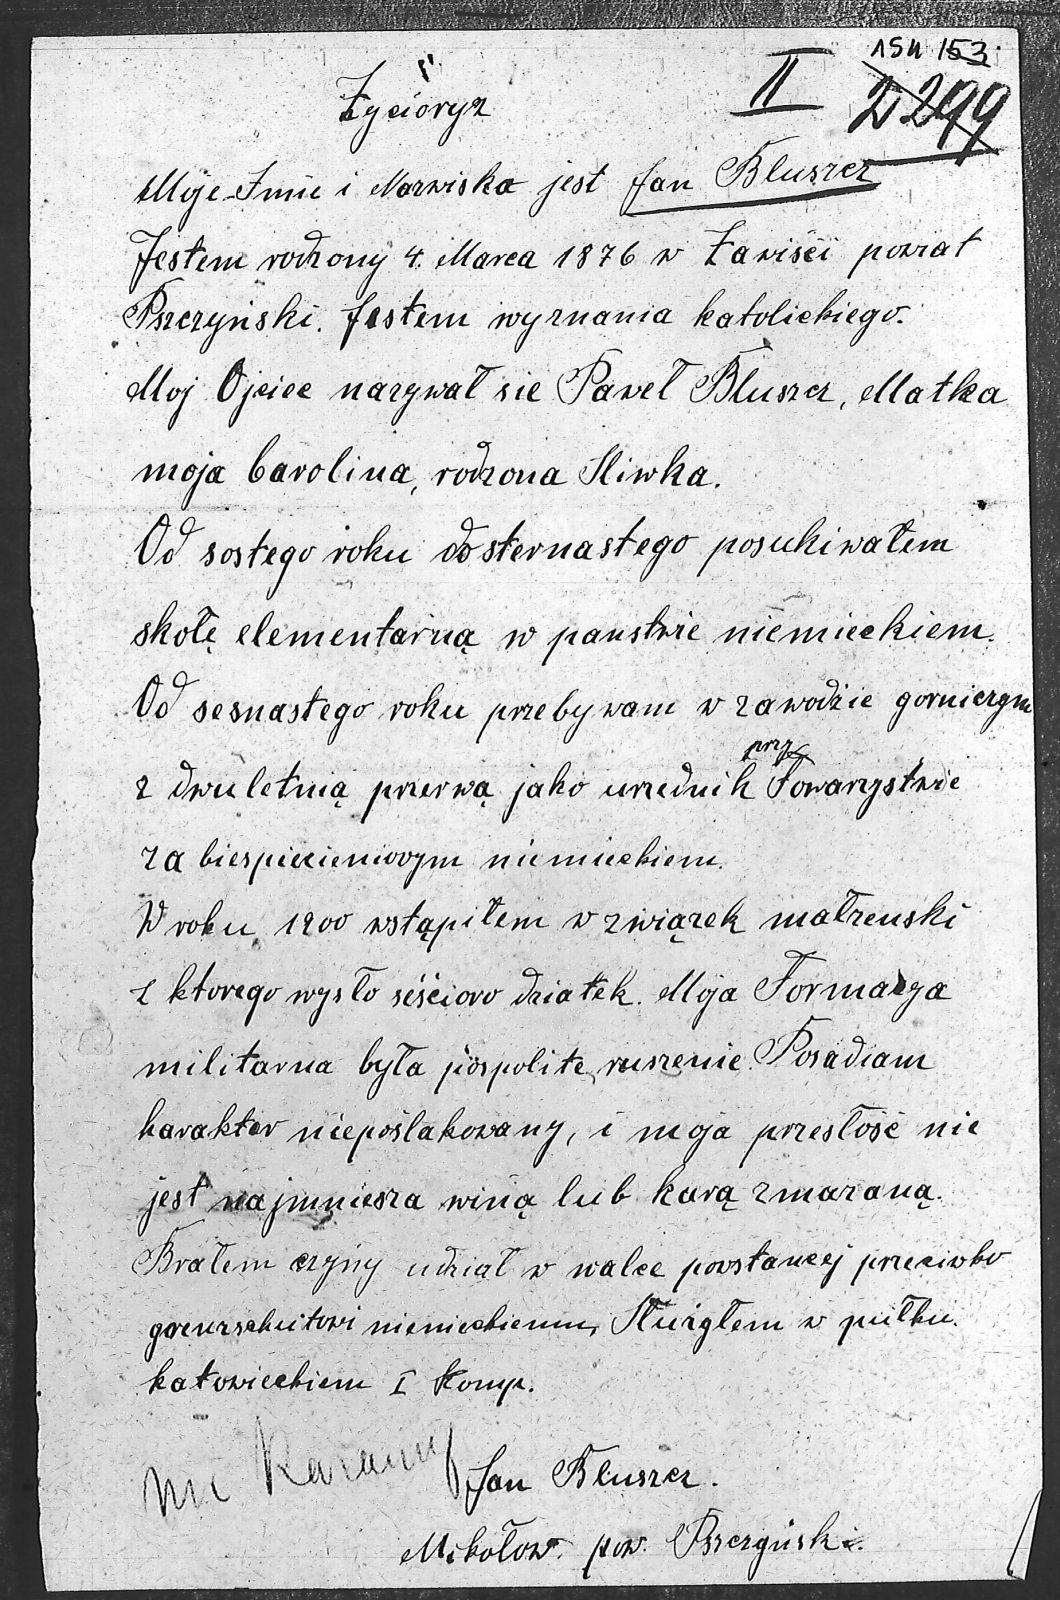 154 153
II 2299
Życiórys
Moje Imie i Nazwisko jest Jan Bluszcz
Jestem rodzony 4. Marca 1876 w Zawiści powiat
Pszczyński. Jestem wyznania katolickiego.
Moj Ojciec nazywał sie Paweł Bluszcz, Matka
moja Carolina, rodzona Sliwka.
Od sostego roku do sternastego posukiwałem
skołę elementarną w panstwie niemieckiem.
Od sesnastego roku przebywam w zawodzie gorniczym
przy
z dwuletnią przerwą jako urzednik Towarzystwie
zabiespiecieniowym niemieckiem.
W roku 1900 wstąpiłem w związek małzenski
z ktorego wysło seścioro dziatek. Moja Formacya
militarna była pospolite ruszenie. Posadiam
karakter nieposlakowany, i moja przesłość nie
jest najmniesza winą lub karą zmazaną.
Brałem czyny udział w walce powstancej przeciwko
grenzschutowi niemieckiemu, Służyłem w pułku
katowieckiem I Komp.
nie karany
Jan Bluszcz.
Mikołow. pow. Pszczyński.